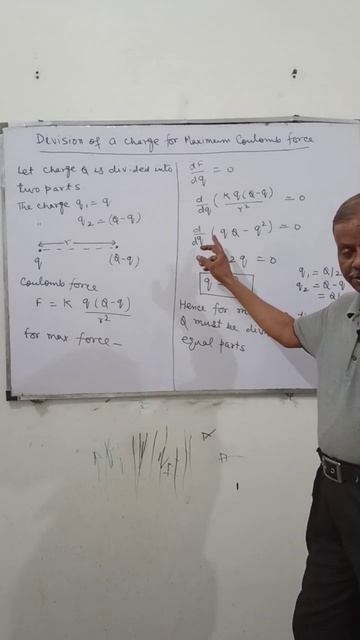 Devision of a charge for Maximum Coulomb force
Let charge Q is divided into
two parts.
The charge q₁ = q
" q₂ = (Q-q)
r
q (Q-q)
Coulomb force
F = K q(Q-q)/r²
for max force—
dF/dq = 0
d/dq (K q(Q-q)/r²) = 0
d/dq (qQ - q²) = 0
2q = 0
q
q₁ = Q/2
q₂ = Q - q
= Q
Hence for
Q must be
equal parts